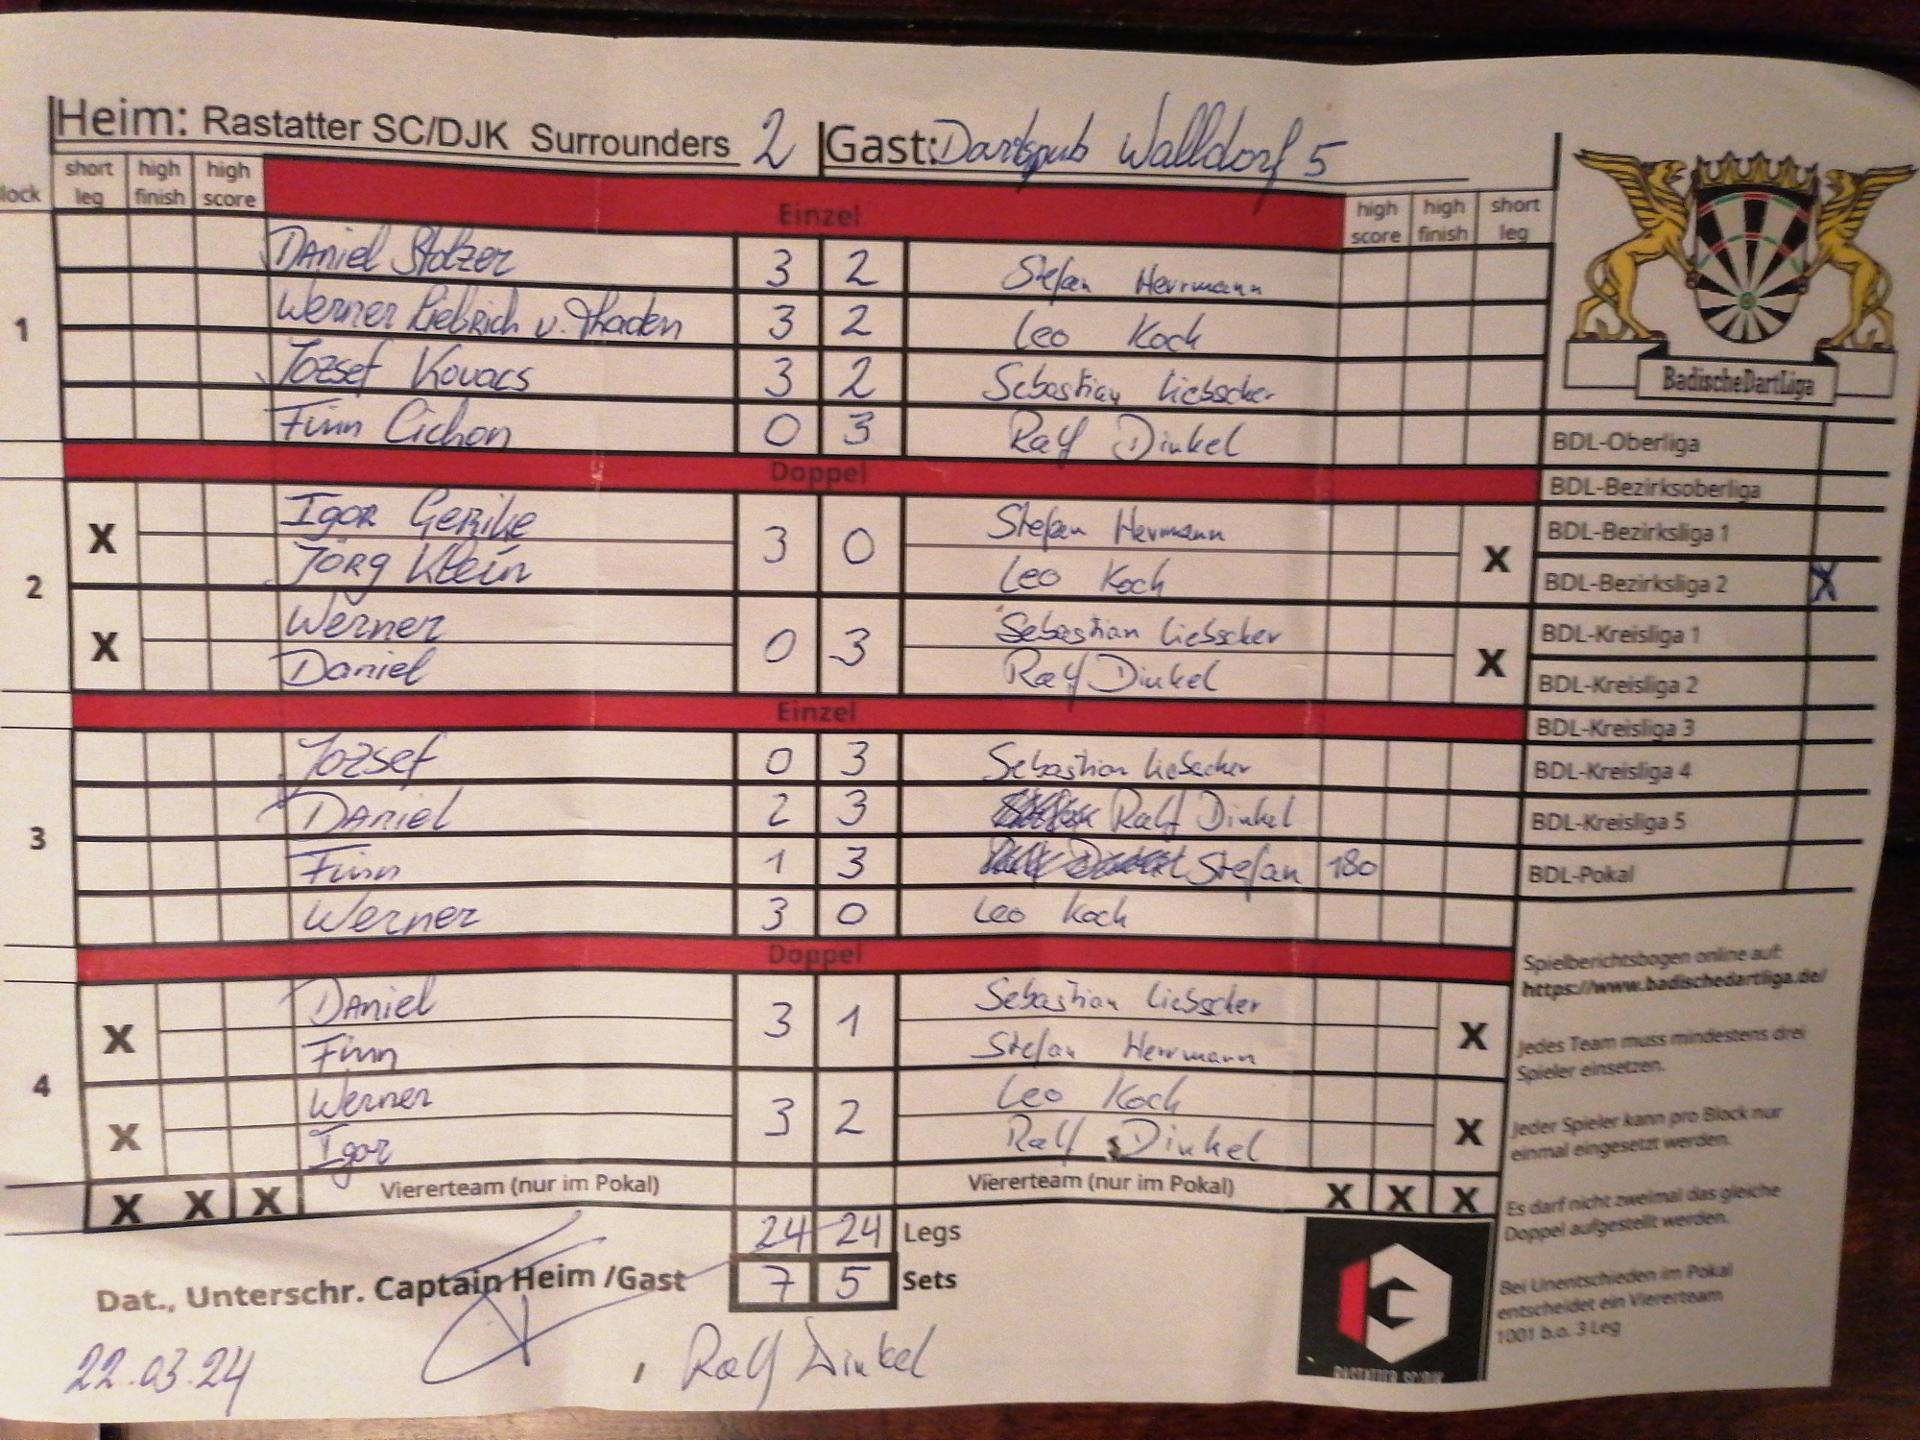 Heim: Rastatter SC/DJK Surrounders 2 Gast: Dartspub Walldorf 5
lock short leg high finish high score Einzel high score high finish short leg
1
Daniel Stolzer 3 2 Stefan Herrmann
Werner Liebrich v. Thaden 3 2 Leo Koch
Jozsef Kovacs 3 2 Sebastian Liebscher
Finn Cichon 0 3 Ralf Dinkel
Doppel
2
X Igor Gerike 3 0 Stefan Herrmann X
Jörg Klein Leo Koch
X Werner 0 3 Sebastian Liebscher X
Daniel Ralf Dinkel
Einzel
3
Jozsef 0 3 Sebastian Liebscher
Daniel 2 3 Ralf Dinkel
Finn 1 3 Stefan 180
Werner 3 0 Leo Koch
Doppel
4
X Daniel 3 1 Sebastian Liebscher X
Finn Stefan Herrmann
X Werner 3 2 Leo Koch X
Igor Ralf Dinkel
X X X Viererteam (nur im Pokal) Viererteam (nur im Pokal) X X X
24 24 Legs
7 5 Sets
Dat., Unterschr. Captain Heim /Gast
22.03.24 Ralf Dinkel
BadischeDartLiga
BDL-Oberliga
BDL-Bezirksoberliga
BDL-Bezirksliga 1
BDL-Bezirksliga 2 X
BDL-Kreisliga 1
BDL-Kreisliga 2
BDL-Kreisliga 3
BDL-Kreisliga 4
BDL-Kreisliga 5
BDL-Pokal
Spielberichtsbogen online auf:
https://www.badischedartliga.de/
Jedes Team muss mindestens drei
Spieler einsetzen.
Jeder Spieler kann pro Block nur
einmal eingesetzt werden.
Es darf nicht zweimal das gleiche
Doppel aufgestellt werden.
Bei Unentschieden im Pokal
entscheidet ein Viererteam
1001 b.o. 3 Leg